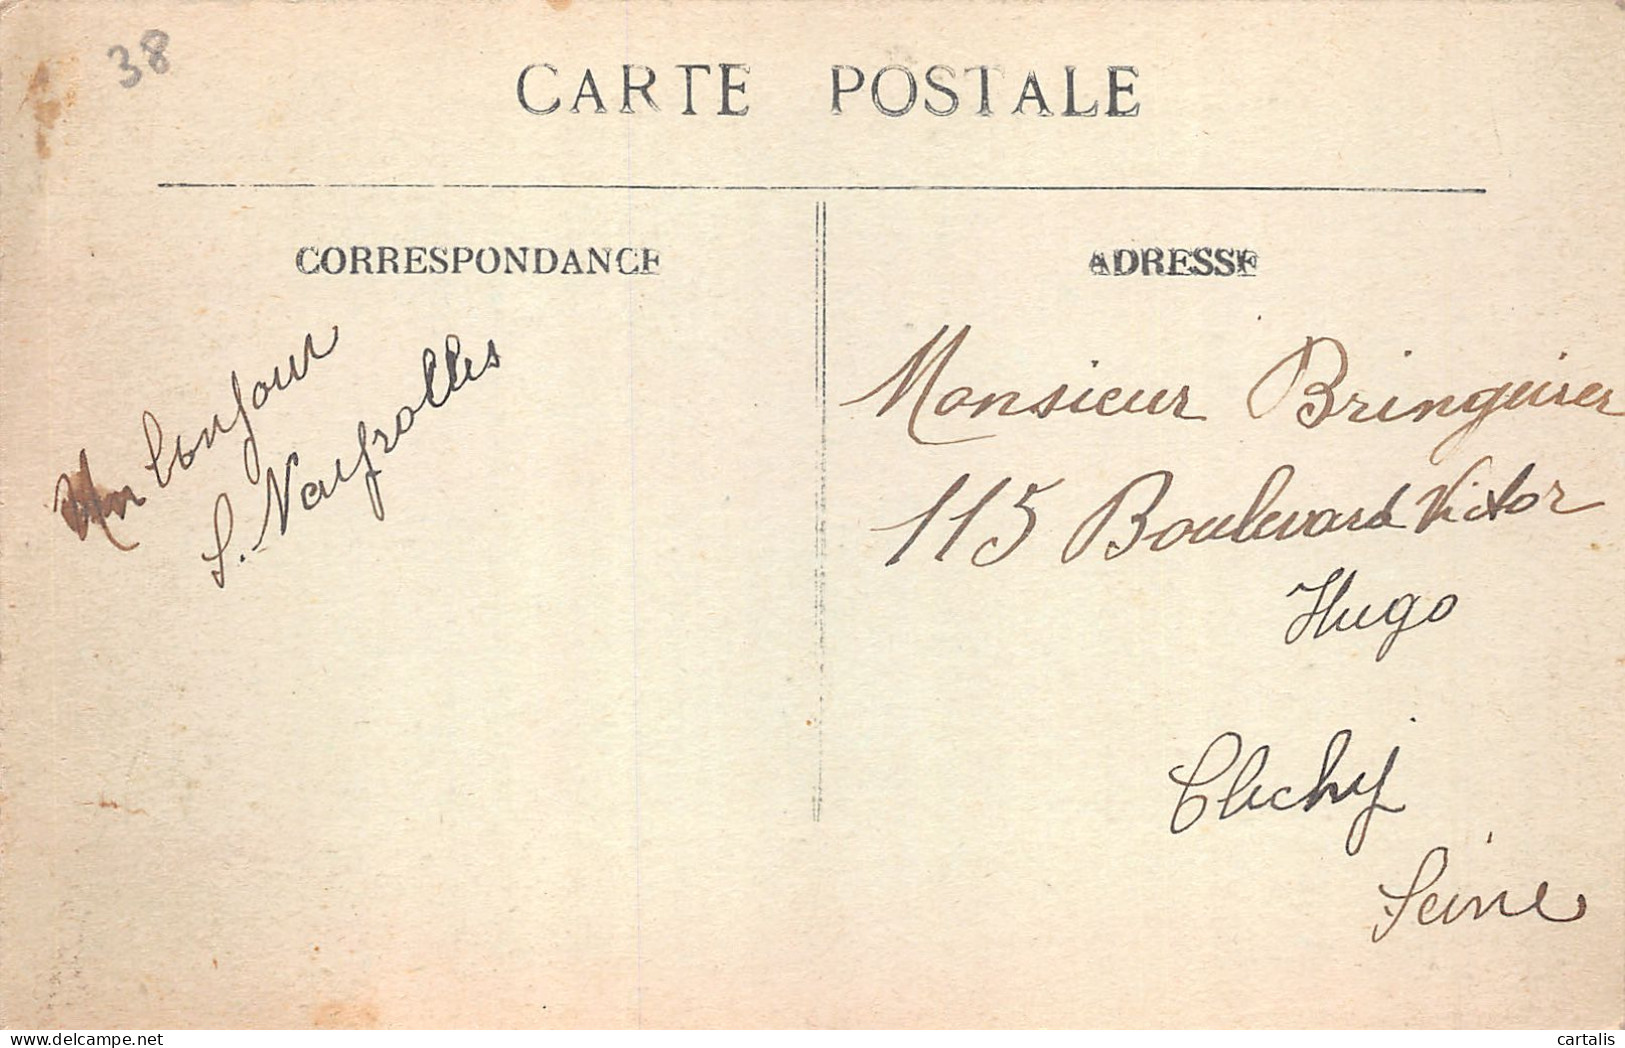 38
CARTE POSTALE
CORRESPONDANCE
Un bonjour
S. Naufrolles
ADRESSE
Monsieur Bringuier
115 Boulevard Victor
Hugo
Clichy
Seine
cartalis